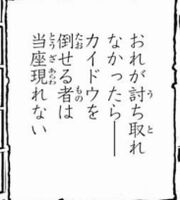 おれが討ち取れ
なかったら──
カイドウを
倒せる者は
当座現れない